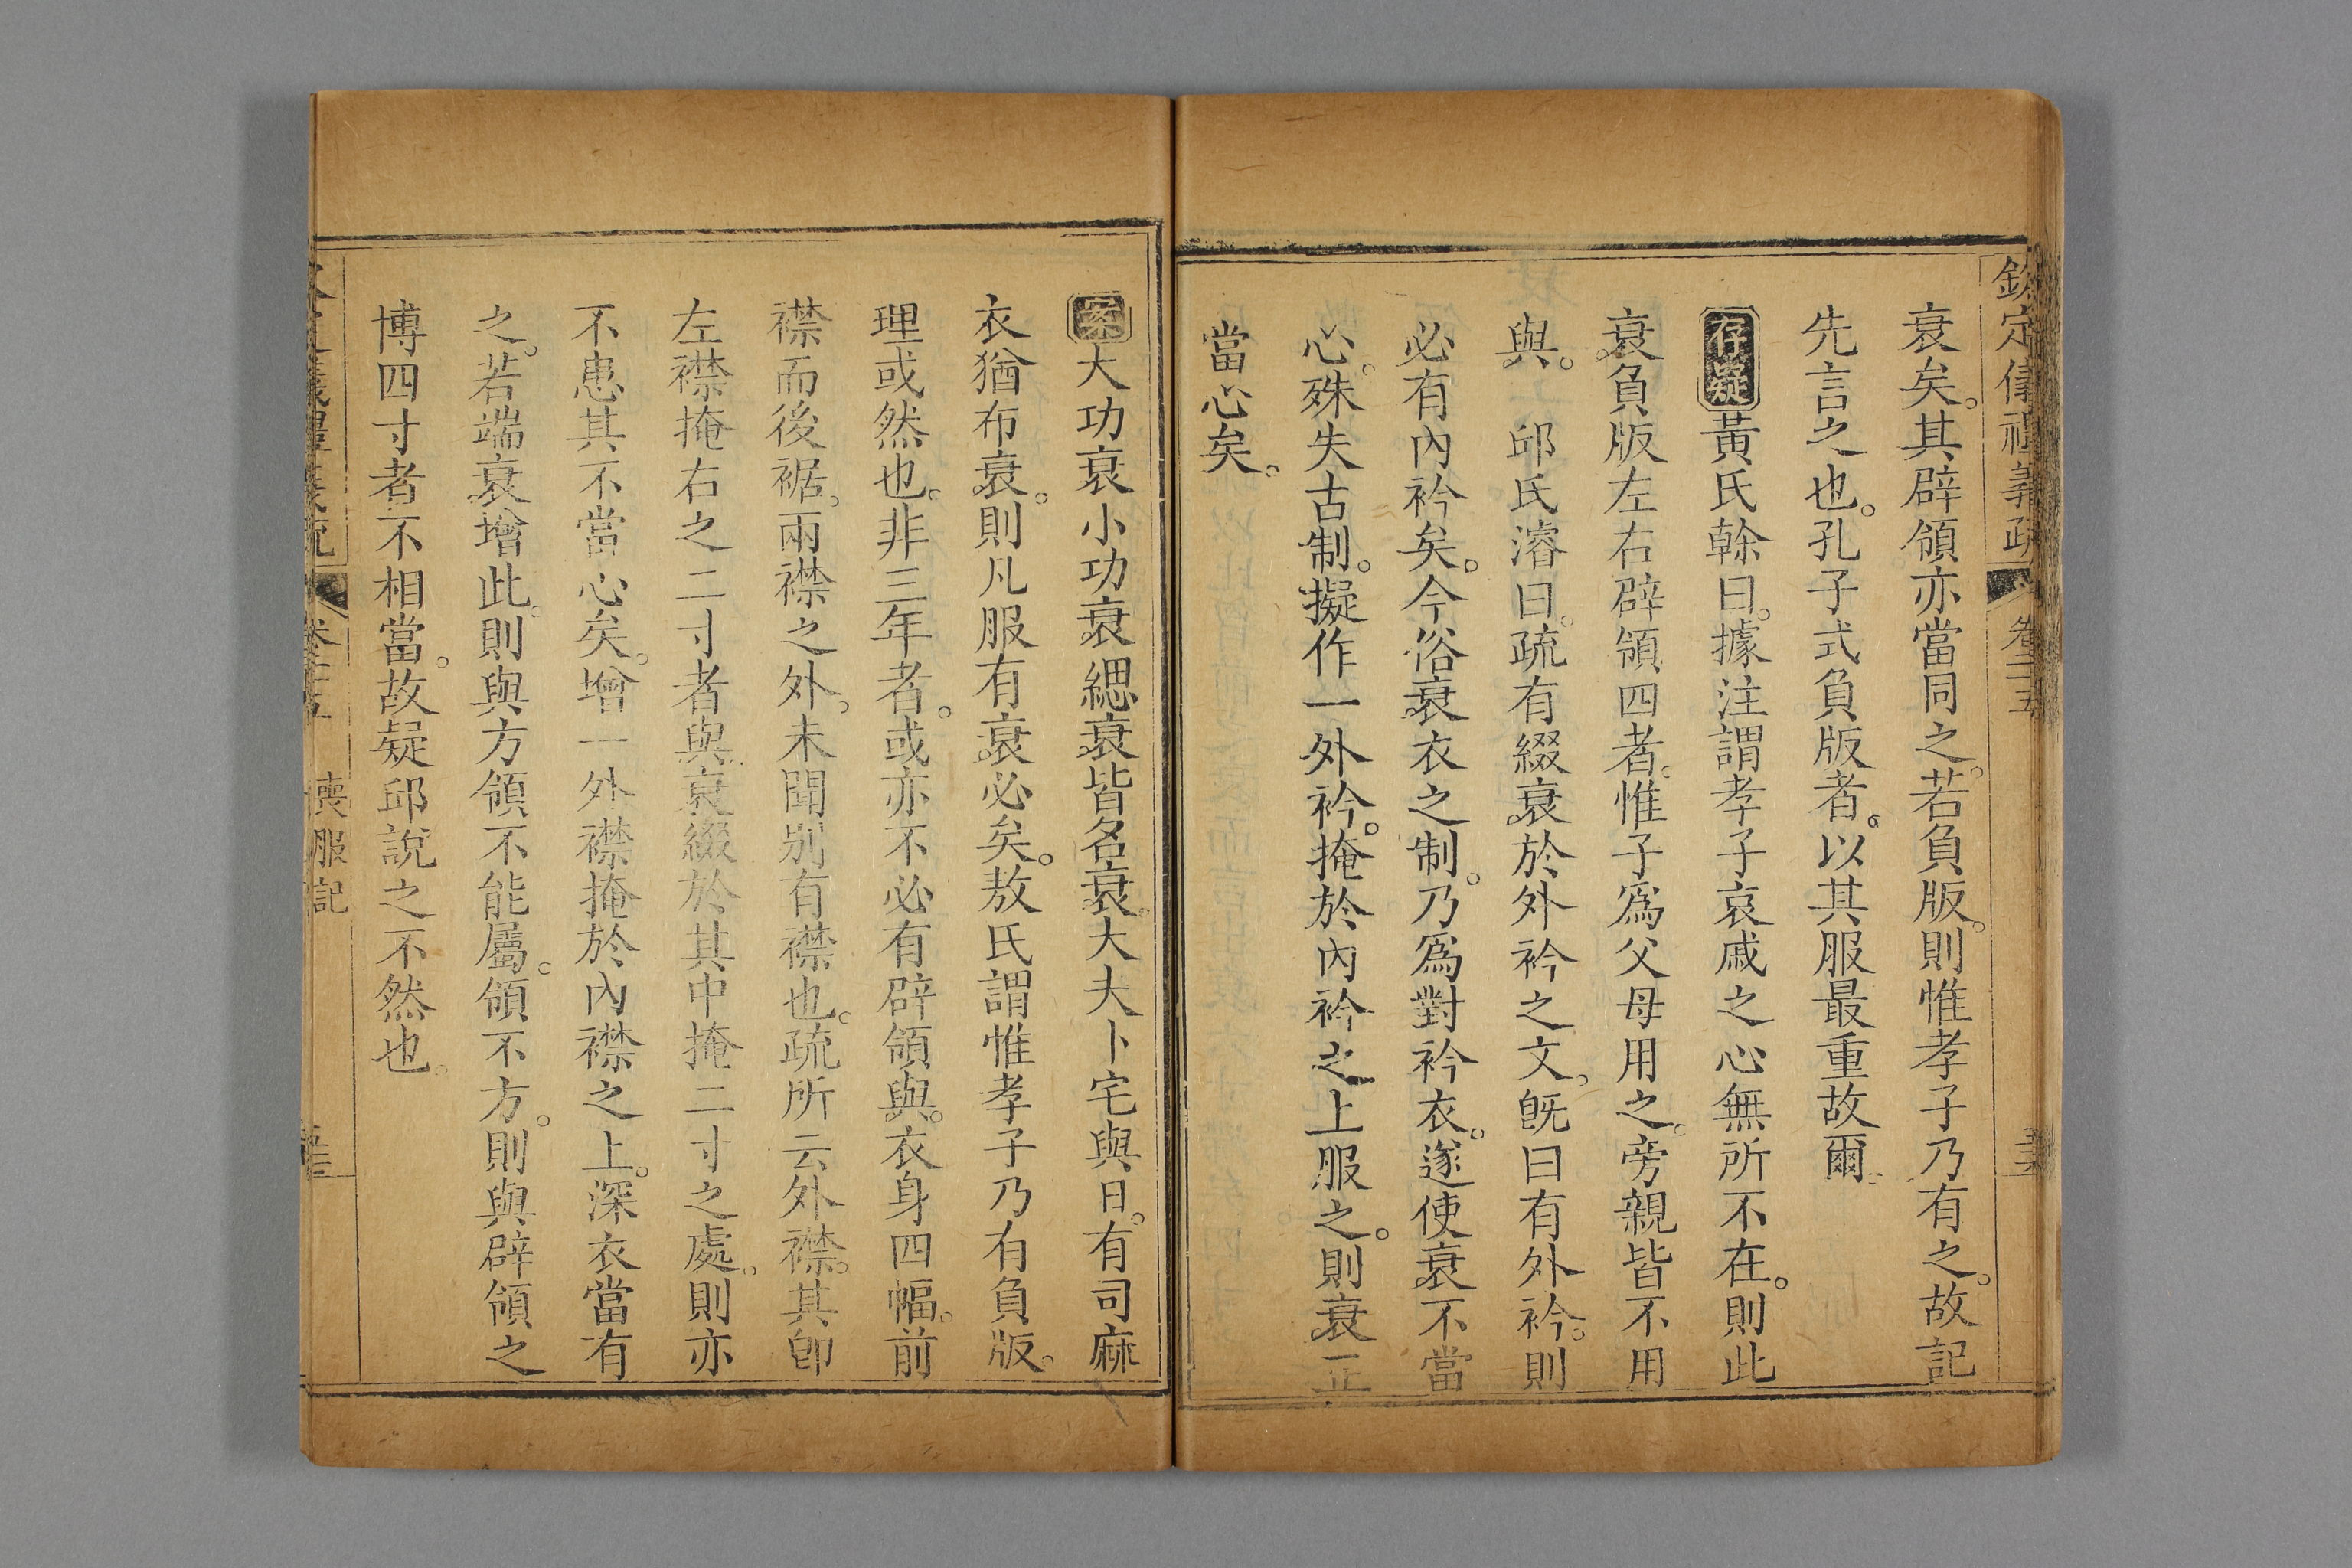 欽定儀禮義疏 卷二十五
衰矣。其辟領亦當同之。若負版。則惟孝子乃有之。故記
先言之也。孔子式負版者。以其服最重故爾。
存疑黃氏榦曰。據注謂孝子哀戚之心無所不在。則此
衰負版左右辟領四者。惟子爲父母用之。旁親皆不用
與。 邱氏濬曰。疏有綴衰於外衿之文。旣曰有外衿。則
必有內衿矣。今俗衰衣之制。乃爲對衿衣。遂使衰不當
心。殊失古制。擬作一外衿。掩於內衿之上服之。則衰正
當心矣。
案大功衰小功衰緦衰皆名衰。大夫卜宅與日。有司麻
衣猶布衰。則凡服有衰。衰必矣。敖氏謂惟孝子乃有負版。
理或然也。非三年者。或亦不必有辟領與。衣身四幅。前
襟而後裾。兩襟之外。未聞別有襟也。疏所云外襟。其卽
左襟掩右之二寸者與。衰綴於其中掩二寸之處。則亦
不患其不當心矣。增一外襟掩於內襟之上。深衣當有
之。若端衰增此。則與方領不能屬。領不方。則與辟領之
博四寸者不相當。故疑邱說之不然也。
喪服記